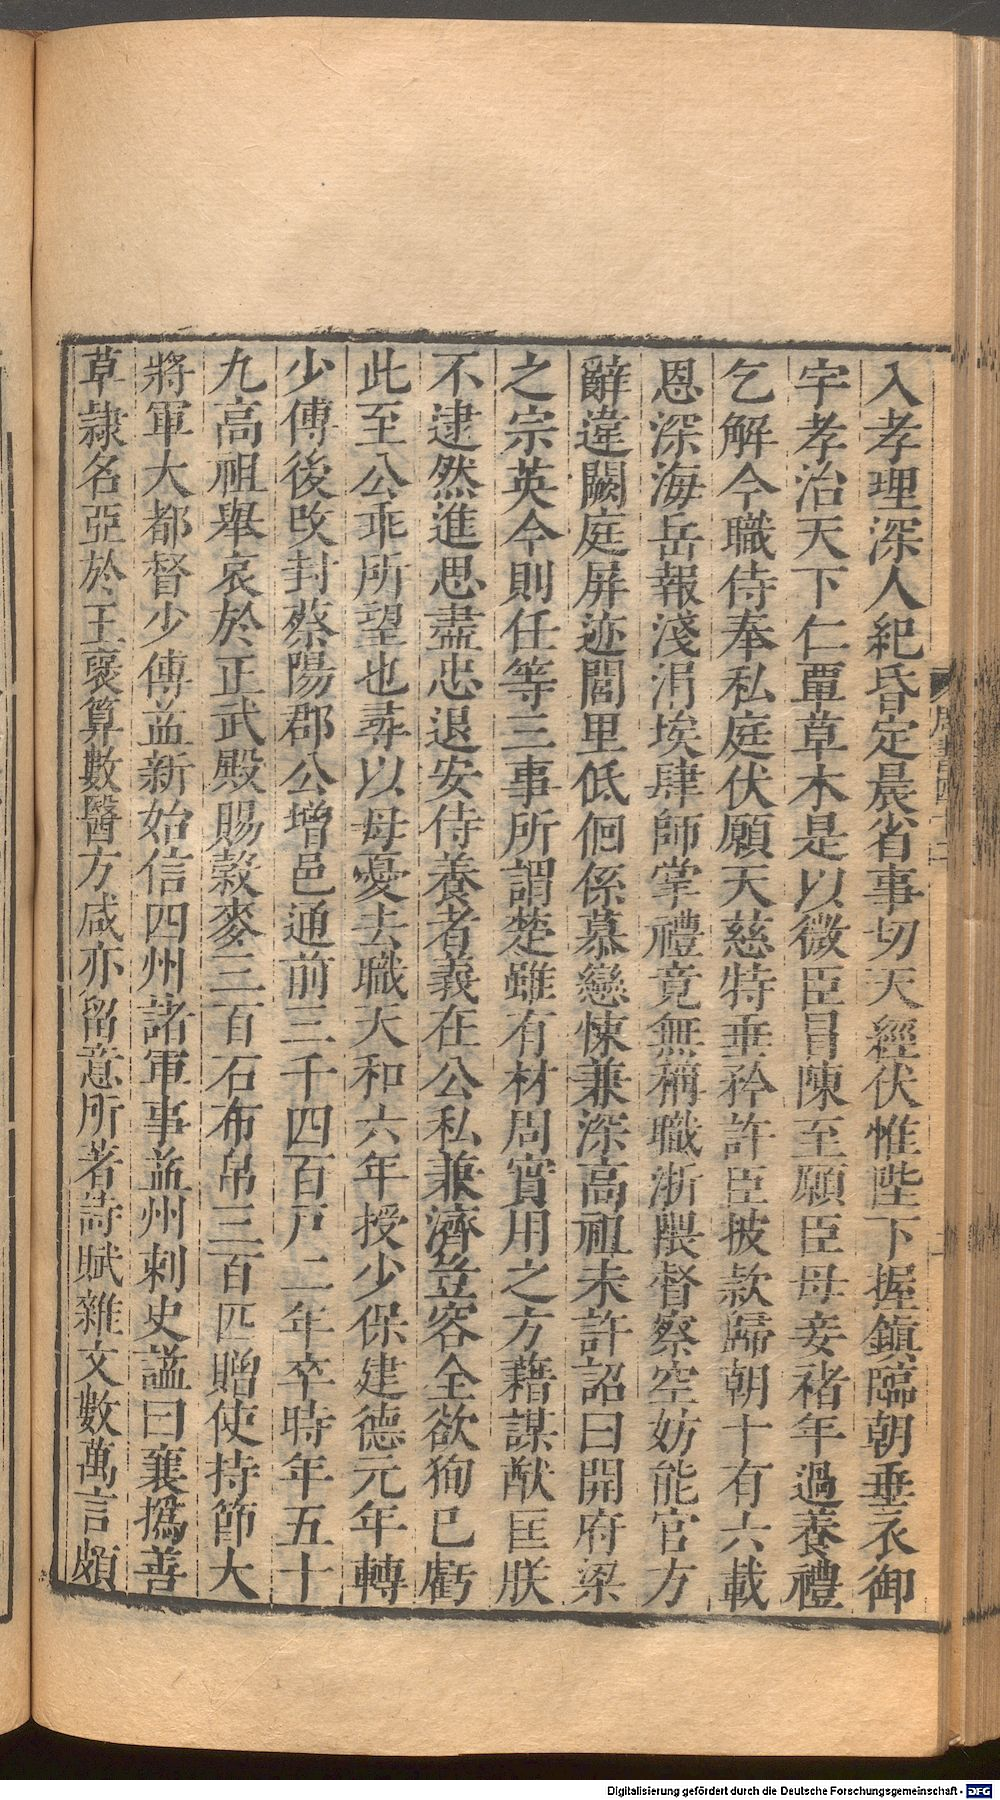 入孝理深人紀昏定晨省事切天經伏惟陛下握鎮臨朝垂衣御
宇孝治天下仁覃草木是以微臣冒陳至願臣母妾褚年過養禮
乞解今職侍奉私庭伏願天慈特垂矜許臣披款歸朝十有六載
恩深海岳報淺涓埃肆師掌禮竟無稱職浙隈督察空妨能官方
辭違闕庭屏迹閭里低佪係慕戀悚兼深高祖未許詔曰開府梁
之宗英今則任等三事所謂楚雖有材周實用之方藉謀猷匡朕
不逮然進思盡忠退安侍養者義在公私兼濟豈容全欲狥已虧
此至公乖所望也尋以母憂去職天和六年授少保建德元年轉
少傅後改封蔡陽郡公增邑通前三千四百戶二年卒時年五十
九高祖舉哀於正武殿賜穀麥三百石布帛三百匹贈使持節大
將軍大都督少傅益新始信四州諸軍事益州刺史謚曰襄撝善
草隸名亞於王褒算數醫方咸亦留意所著詩賦雜文數萬言頗
Digitalisierung gefördert durch die Deutsche Forschungsgemeinschaft - DFG